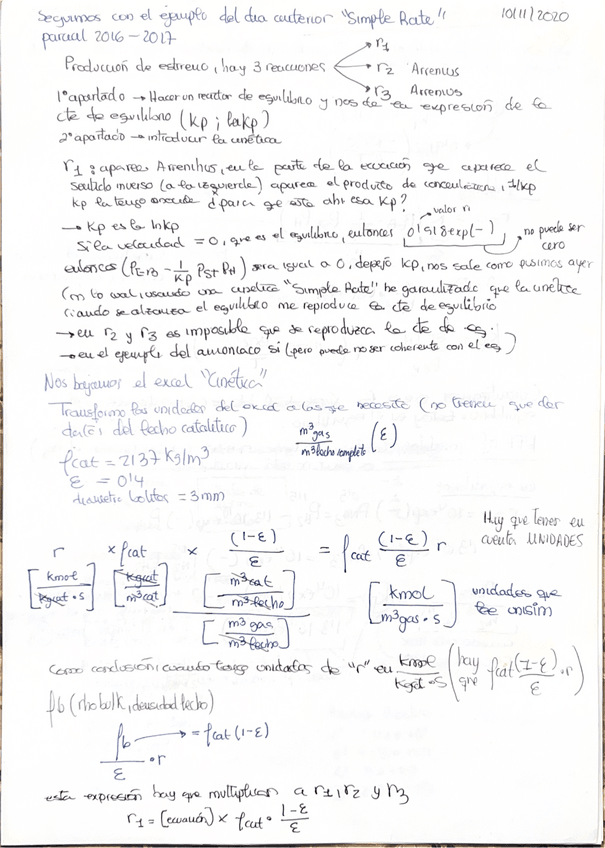 Seguimos con el ejemplo del dia anterior "Simple Rate"
10/11/2020
parcial 2016-2017
Producción de estireno, hay 3 reacciones
r1
r2 Arrenius
r3 Arrenius
1º apartado → Hacer un reactor de equilibrio y nos da la expresión de la
cte de equilibrio (Kp ; lnKp)
2º apartado → introducir la cinética
r1 : aparece Arrenhius, en la parte de la ecuación que aparece el
sentido inverso (a la izquierda) aparece el producto de concentraciones, 1/Kp
Kp la tengo ¿para que esta ahi esa Kp?
→ Kp es la lnKp
valor r1
Si la velocidad = 0, que es el equilibrio, entonces 0'918 exp(-)
no puede ser cero
entonces (PEB - 1/Kp PST PH) sera igual a 0, despejo Kp, nos sale como pusimos ayer
Con lo cual, usando una cinética "Simple Rate" he garantizado que la cinética
cuando se alcanza el equilibrio me reproduce la cte de equilibrio
→ en r2 y r3 es imposible que se reproduzca la cte de eq.
→ en el ejemplo del amoniaco si (pero puede no ser coherente con el eq)
Nos bajamos el excel "Cinética"
Transformo las unidades del excel a las que necesito (no tienen que dar
datos del lecho catalítico)
m³gas / m³lecho completo (ε)
ρcat = 2137 Kg/m³
ε = 0'4
diametro bolitas = 3mm
Hay que tener en
cuenta UNIDADES
r × ρcat × (1-ε)/ε = ρcat (1-ε)/ε r
[kmol / kgcat·s] [kgcat / m³cat] [m³cat / m³lecho] / [m³gas / m³lecho] [kmol / m³gas·s] unidades que
lee unisim
Como conclusión: cuando tengo unidades de "r" en kmol/kgcat·s (hay que ρcat(1-ε)/ε · r)
ρb (rho bulk, densidad lecho)
ρb → = ρcat(1-ε)
ρb/ε · r
esta expresión hay que multiplicar a r1, r2 y r3
r1 = [ecuación] × ρcat · 1-ε/ε